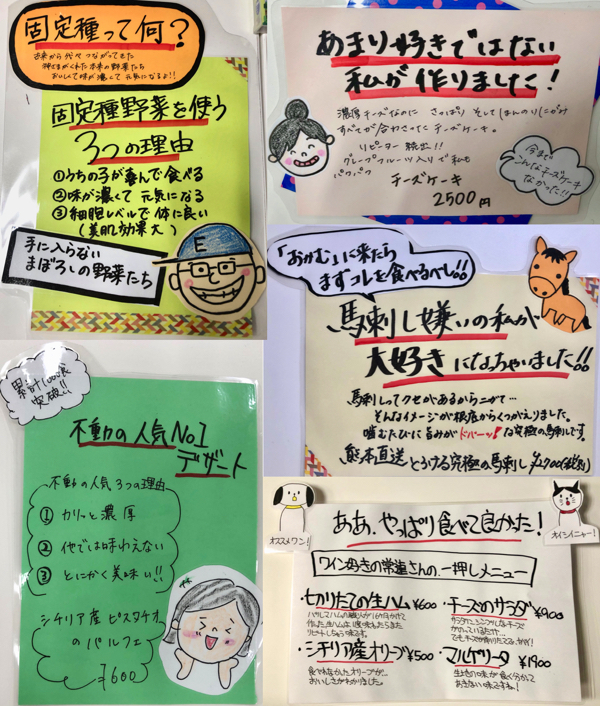 固定種って何？
古来から代々つながってきた
神さまがくれた本来の野菜たち
おいしくて味が濃くて元気になるよ!!
固定種野菜を使う
3つの理由
①うちの子が喜んで食べる
②味が濃くて 元気になる
③細胞レベルで体に良い
(美肌効果大)
手に入らない
まぼろしの野菜たち
E
あまり好きではない
私が作りました！
濃厚チーズなのに さっぱり そして ほんのりにがみ
すべてが合わさった チーズケーキ。
リピーター続出!!
グレープフルーツ入りで私も
パクパク
チーズケーキ
2500円
今まで
こんなチーズケーキ
なかった!!
「おかむ」に来たら
まずコレを食べるべし!!
馬刺し嫌いの私が
大好きになっちゃいました!!
馬刺しってクセがあるからニガテ…
そんなイメージが根底からくつがえりました。
噛むたびに旨みがドバーッ!な究極の馬刺しです。
熊本直送 とろける究極の馬刺し ¥2,700(税別)
累計1000食
突破!!
不動の人気No1
デザート
不動の人気3つの理由
① カリッと濃厚
② 他では味わえない
③ とにかく美味い!!
シチリア産ピスタチオ
のパルフェ
¥600
オススメワン！
オイシイニャー！
ああ、やっぱり食べて良かった！
ワイン好きの常連さんの一押しメニュー
・切りたての生ハム ¥600
リピートしちゃう味です。
・チーズのサラダ ¥900
・シチリア産オリーブ ¥500
食べれなかったオリーブが…
おいしさがわかりました。
・マルゲリータ ¥1900